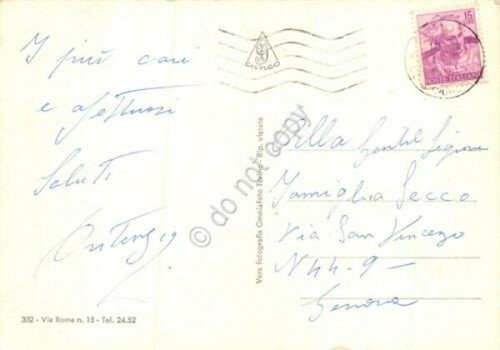 I più cari
e affettuosi
Saluti
Ortensia
302 - Via Roma n. 15 - Tel. 24.52
Vera fotografia Omniafoto Torino - Rip. vietata
cuneo
15
POSTE ITALIANE
Alla Gentil Signora
Famiglia Secco
Via San Vincenzo
N 44-9-
Genova
do not copy